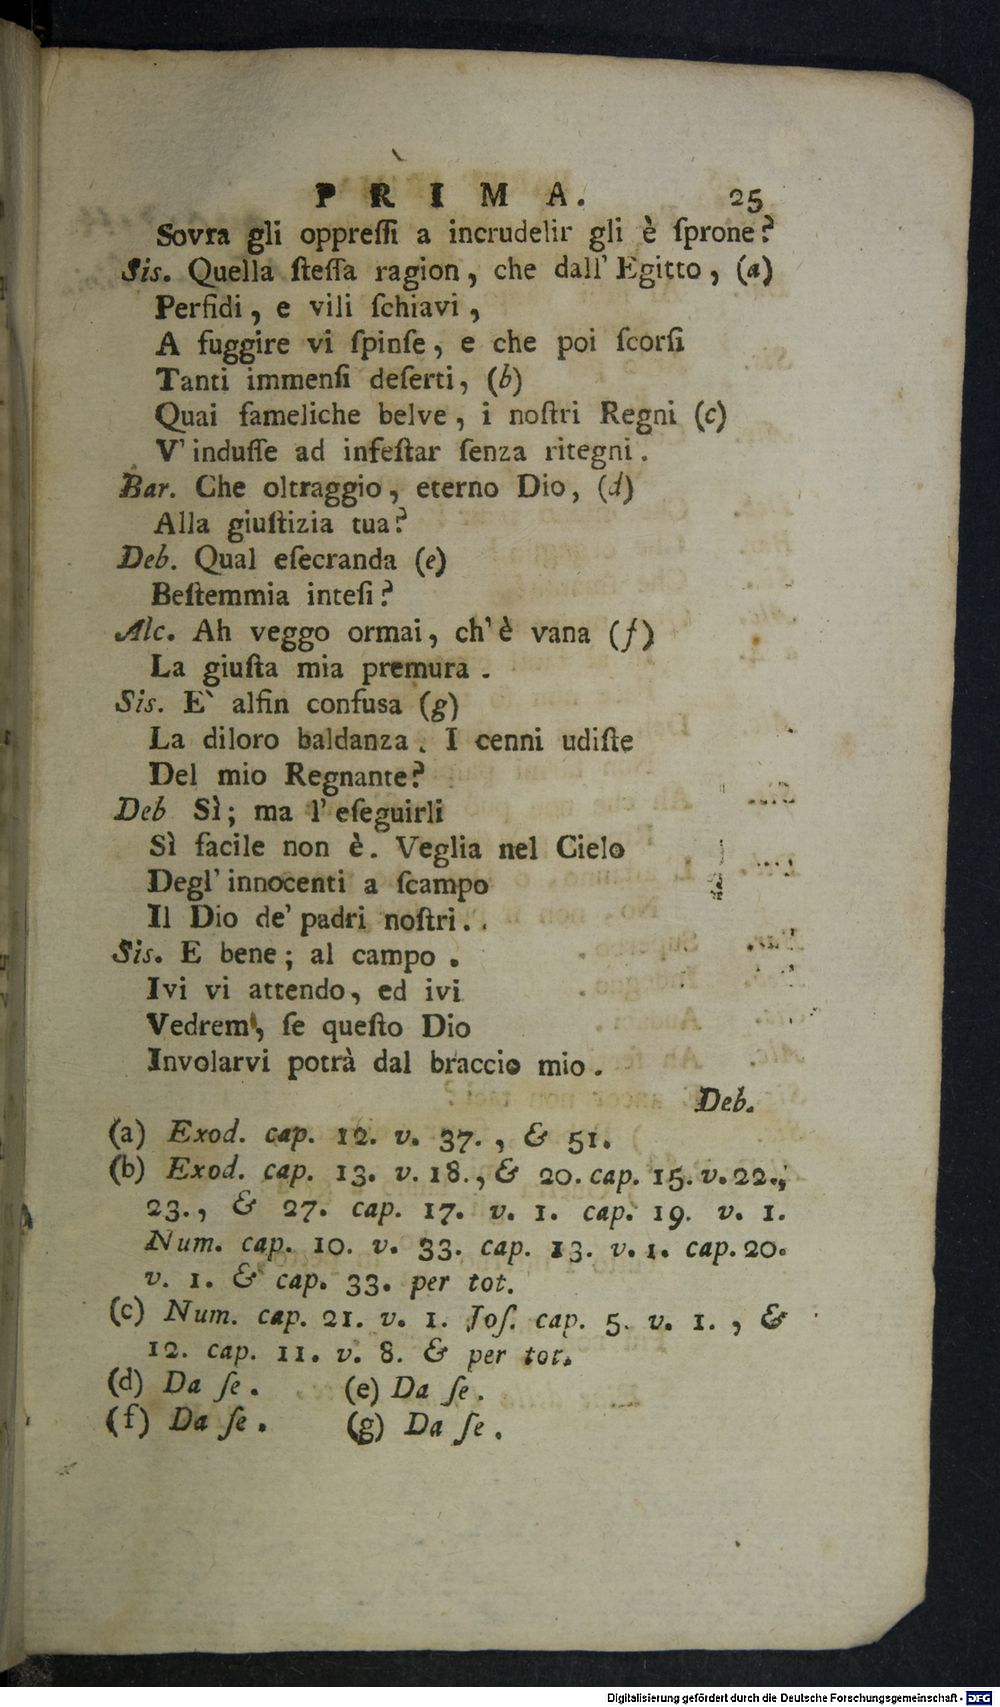 PRIMA. 25
Sovra gli oppreſſi a incrudelir gli è ſprone?
Sis. Quella ſteſſa ragion, che dall' Egitto, (a)
Perfidi, e vili ſchiavi,
A fuggire vi ſpinſe, e che poi ſcorſi
Tanti immenſi deſerti, (b)
Quai fameliche belve, i noſtri Regni (c)
V' induſſe ad infeſtar ſenza ritegni.
Bar. Che oltraggio, eterno Dio, (d)
Alla giuſtizia tua?
Deb. Qual eſecranda (e)
Beſtemmia inteſi?
Alc. Ah veggo ormai, ch' è vana (f)
La giuſta mia premura.
Sis. E` alfin confusa (g)
La diloro baldanza. I cenni udiſte
Del mio Regnante?
Deb Sì; ma l' eſeguirli
Sì facile non è. Veglia nel Cielo
Degl' innocenti a ſcampo
Il Dio de' padri noſtri..
Sis. E bene; al campo.
Ivi vi attendo, ed ivi
Vedrem', ſe queſto Dio
Involarvi potrà dal braccio mio.
Deb.
(a) Exod. cap. 12. v. 37., & 51.
(b) Exod. cap. 13. v. 18., & 20. cap. 15. v. 22.,
23., & 27. cap. 17. v. 1. cap. 19. v. 1.
Num. cap. 10. v. 33. cap. 13. v. 1. cap. 20.
v. 1. & cap. 33. per tot.
(c) Num. cap. 21. v. 1. Joſ. cap. 5. v. 1., &
12. cap. 11. v. 8. & per tot.
(d) Da ſe. (e) Da ſe.
(f) Da ſe. (g) Da ſe.
Digitalisierung gefördert durch die Deutsche Forschungsgemeinschaft - DFG